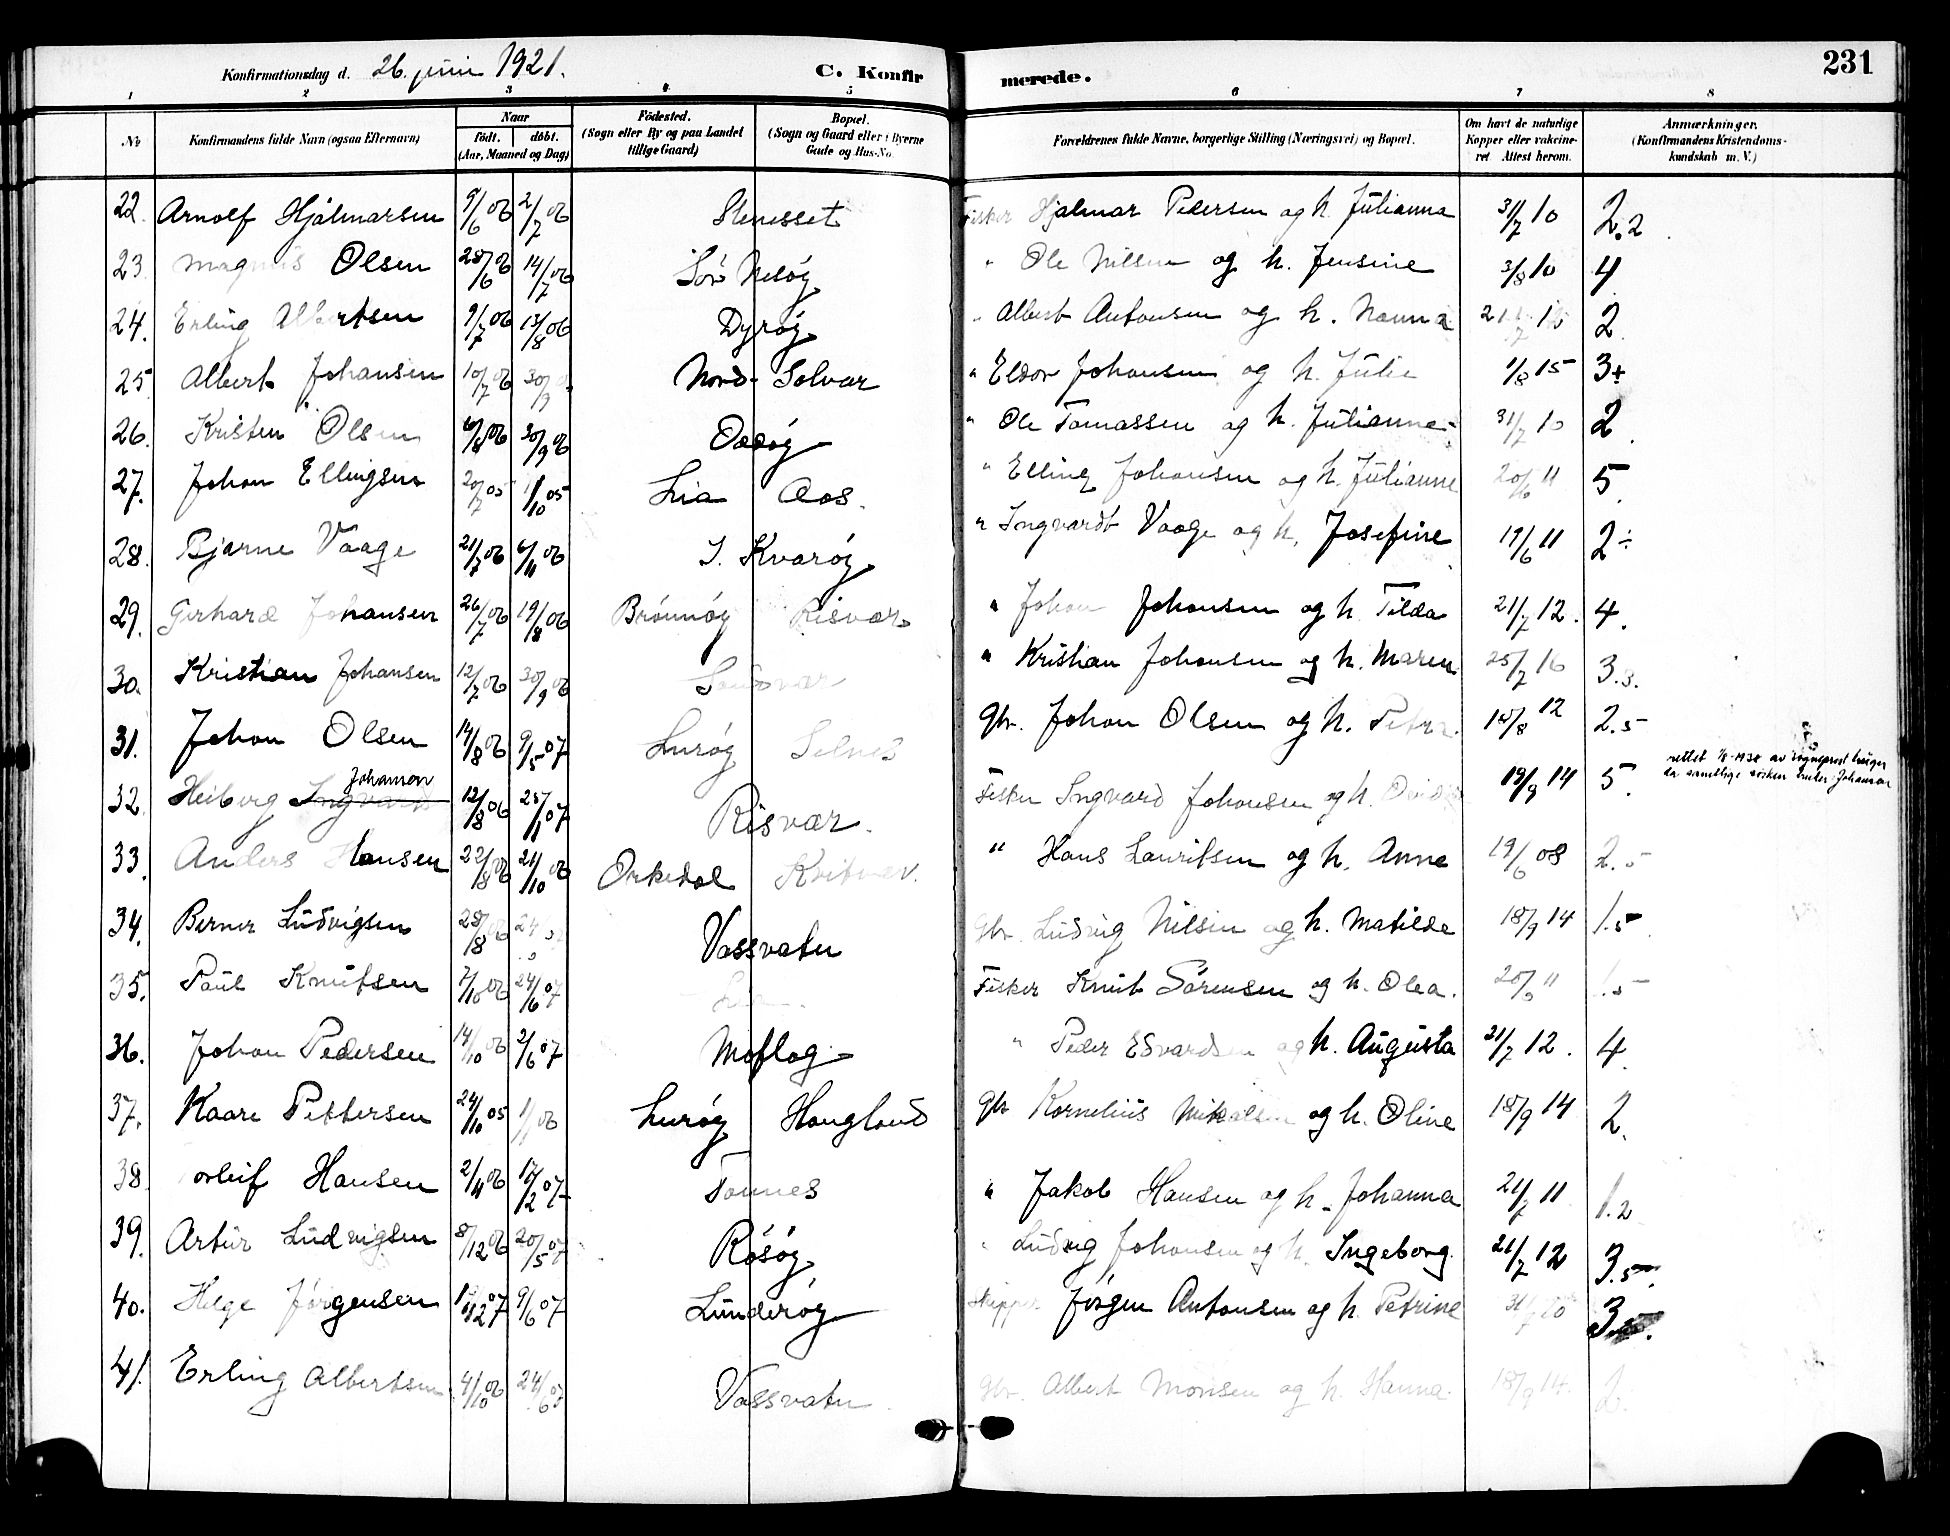 231
Konfirmationsdag d. 26. juni 1921. C. Konfirmerede.
1 2 3 4 5 6 7 8
No
Konfirmandens fulde Navn (ogsaa Efternavn)
Naar
født. døbt.
(Aar, Maaned og Dag)
Fødested.
(Sogn eller By og paa Landet tillige Gaard)
Bopæl.
(Sogn og Gaard eller i Byerne Gade og Hus-No.
Forældrenes fulde Navne, borgerlige Stilling (Næringsvei) og Bopæl.
Om havt de naturlige Kopper eller vakcineret. Attest herom.
Anmærkninger.
(Konfirmandens Kristendomskundskab m. V.)
22. Arnolf Hjalmarsen 9/6 06 2/7 06 Stenesset Fisker Hjalmar Pedersen og h. Julianna 31/7 10 2.2
23. Magnus Olsen 28/6 06 14/7 06 Sør Nesøy " Ole Nilsen og h. Jensine 3/8 10 4
24. Erling Albertsen 9/7 06 13/8 06 Dyrøy " Albert Antonsen og h. Nanna 21/7 12 2
25 Albert Johansen 10/7 06 30/9 Nord-Solvær " Eldor Johansen og h. Julie 1/8 15 3+
26. Kristen Olsen 6/8 06 30/9 06 " Ole Tomassen og h. Julianne 31/7 10 2.
27. Johan Ellingsen 20/7 05 1/10 05 Lia Aas. " Elling Johansen og h. Julianne 20/6 11 5.
28. Bjarne Vaage 21/7 06 6/11 06 I. Kvarøy " Ingvardt Vaage og h. Josefine 19/6 11 2÷
29. Gerhard Johansen 26/7 06 19/8 06 Brønnøy Risvær " Johan Johansen og h. Tilda 21/7 12. 4.
30. Kristian Johansen 12/7 06 30/9 06 Sandvær " Kristian Johansen og h. Maren 25/7 16 3.3.
31. Johan Olsen 14/8 06 9/5 07 Lurøy Selnes Gbr. Johan Olsen og h. Petra. 18/8 12 2.5
32. Heiberg Ingvard Johanson 12/8 06 25/1 07 Risvær. Fisker Ingvard Johansen og h. 19/9 14 5. rettet 1/8-1938 av sogneprest
da samtlige søsken heter Johanson
33. Anders Hansen 22/8 06 21/10 06 Orkedal Kvitvær. " Hans Lauritsen og h. Anne 19/6 08 2.5
34. Berner Ludvigsen 28/8 06 24 Vassvatn Gbr. Ludvig Nilsen og h. Matilde 18/9 14 1.5
35. Paul Knutsen 7/10 06 24/6 07 Fisker Knut Sørensen og h. Olea. 20/9 11 1.5
36. Johan Pedersen 14/10 06 2/6 07 Moflag " Peder Edvardsen og h. Augusta 21/7 12. 4.
37. Kaare Pettersen 24/10 05 1/1 06 Lurøy Haugland Gbr Kornelius Mikalsen og h. Oline 18/9 14 2.
38 orleif Hansen 2/11 06 17/2 07 Tonnes " Jakob Hansen og h. Johanna 21/7 11 1.2
39. Artur Ludvigsen 8/12 06 20/5 07 Røsøy " Ludvig Johansen og h. Ingeborg. 21/7 12 3.5.
40. Helge Jørgensen 9/6 07 Lunderøy Skipper Jørgen Antonsen og h. Petrine 31/7 10 3
41. Erling Albertsen 4/10 06 24/6 07 Vassvatn Gbr. Albert Monsen og h. Hanna. 18/9 14. 2.